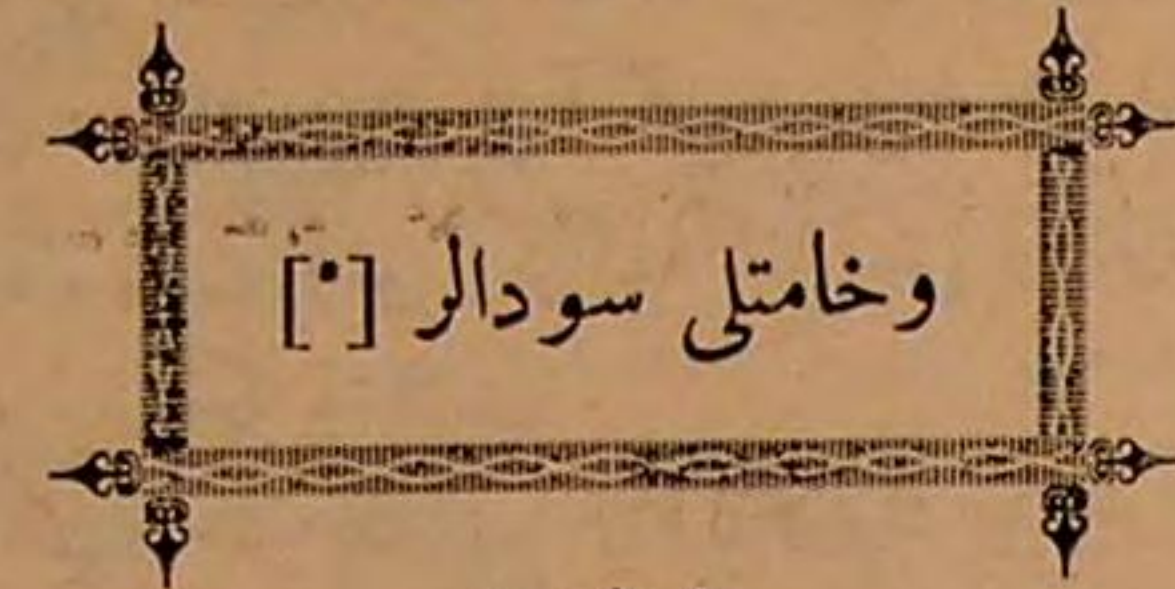 وخامتلى سودالر [٠]